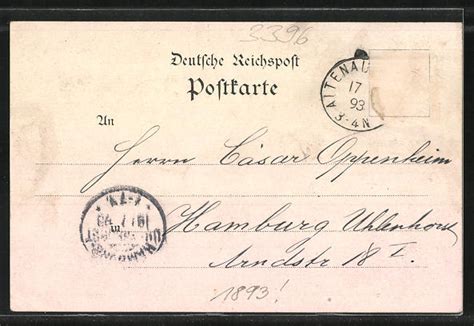 3396
Deutsche Reichspost
Postkarte
ALTENAU
17
93
3-4N
An
Herrn Cäsar Oppenheim
Hamburg Uhlenhorst
Arndstr 18 I.
1893!